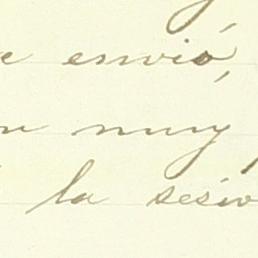 e envió,
muy
la sesio